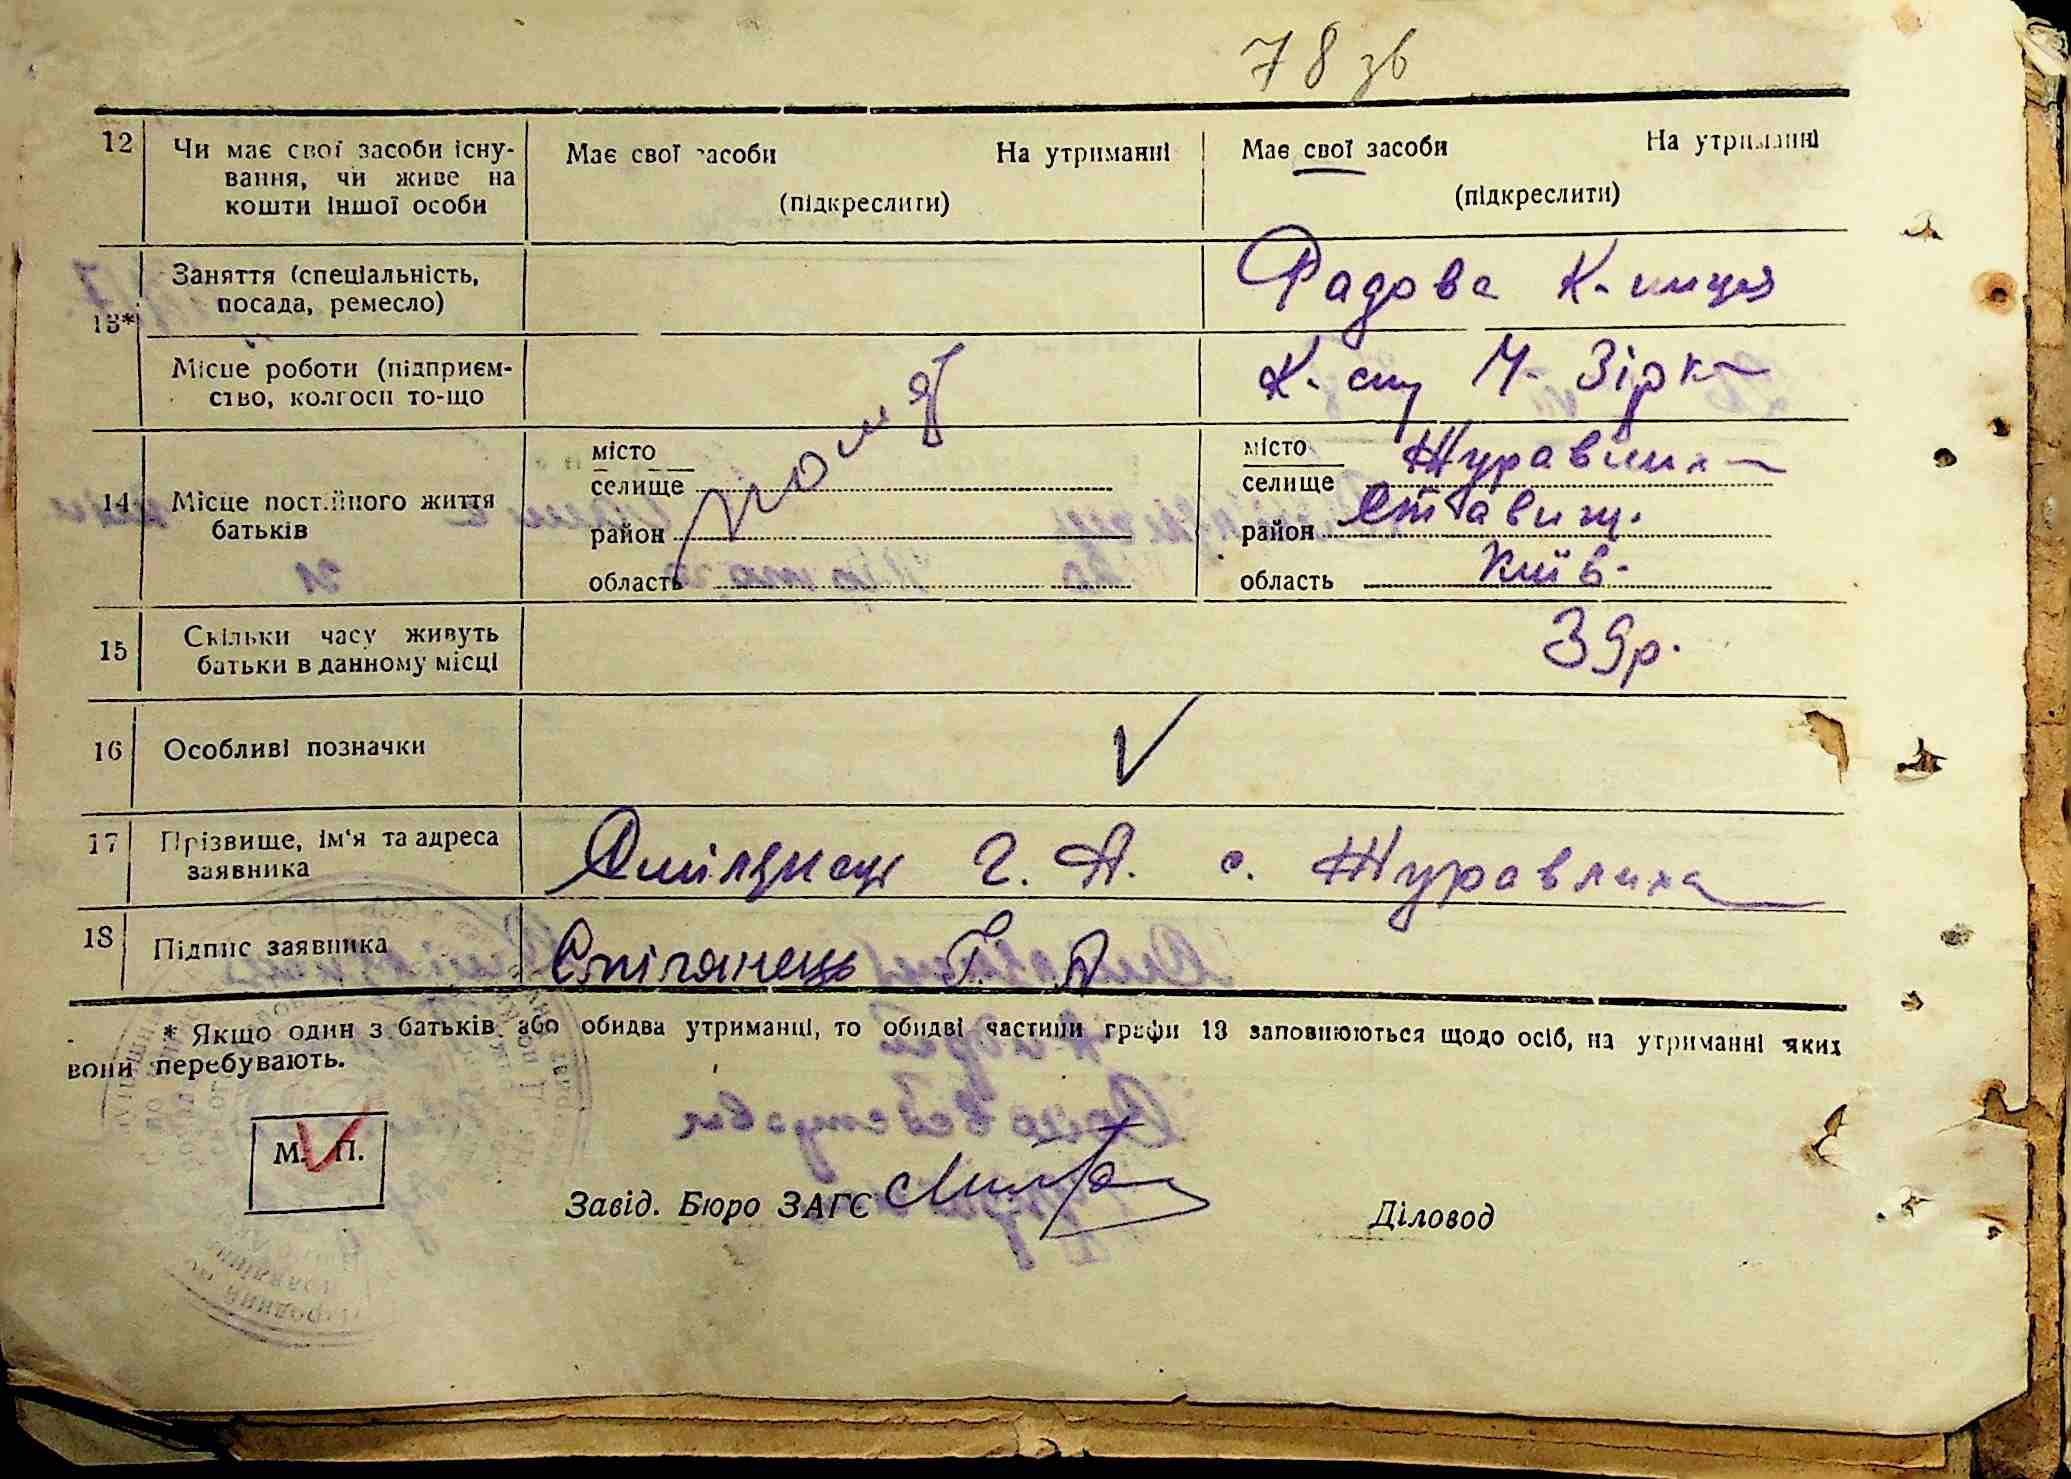 78 зв
12 Чи має свої засоби існу- Має свої засоби На утриманні Має свої засоби На утриманні
вання, чи живе на
кошти іншої особи (підкреслити) (підкреслити)
Заняття (спеціальність, Рядова К-ниця
посада, ремесло)
13*
Місце роботи (підприєм- К-сп Ч-Зірка
ство, колгосп то-що
місто місто Журавлиха
селище селище
14 Місце постійного життя район район Ставищ.
батьків
область область Київ.
15 Скільки часу живуть 39р.
батьки в данному місці
16 Особливі позначки
17 Прізвище, ім'я та адреса Г. А. с. Журавлиха
заявника
18 Підпис заявника Смілянець Г. А
* Якщо один з батьків або обидва утриманці, то обидві частини графи 13 заповнюються щодо осіб, на утриманні яких
вони перебувають.
М. П.
Завід. Бюро ЗАГС Діловод